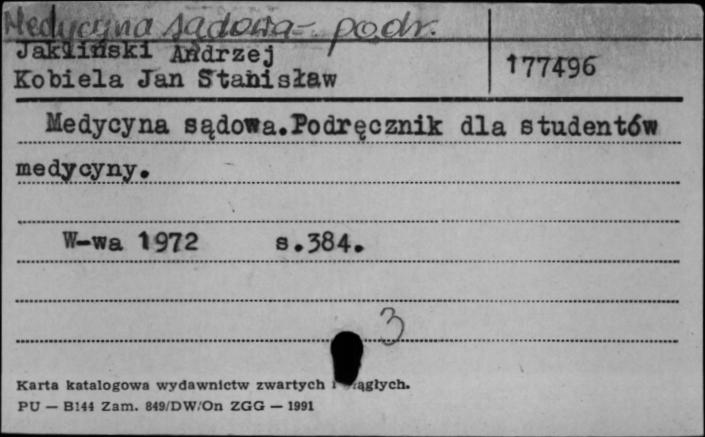 Medycyna sądowa - podr.
Jakliński Andrzej
Kobiela Jan Stanisław
177496
Medycyna sądowa.Podręcznik dla studentów
medycyny.
W-wa 1972 s.384.
3
Karta katalogowa wydawnictw zwartych i ciągłych.
PU — B144 Zam. 849/DW/On ZGG — 1991